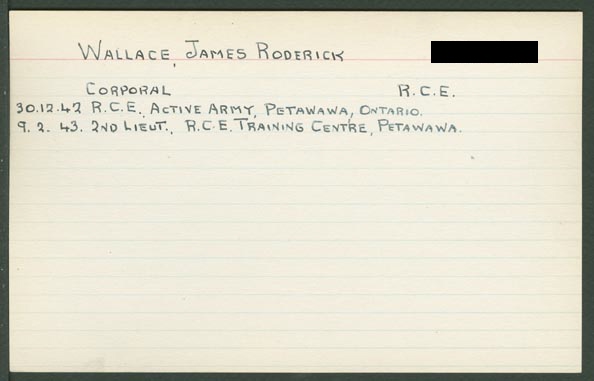 WALLACE, JAMES RODERICK
CORPORAL R.C.E.
30.12.42 R.C.E. ACTIVE ARMY, PETAWAWA, ONTARIO.
9. 2. 43. 2ND LIEUT., R.C.E. TRAINING CENTRE, PETAWAWA.